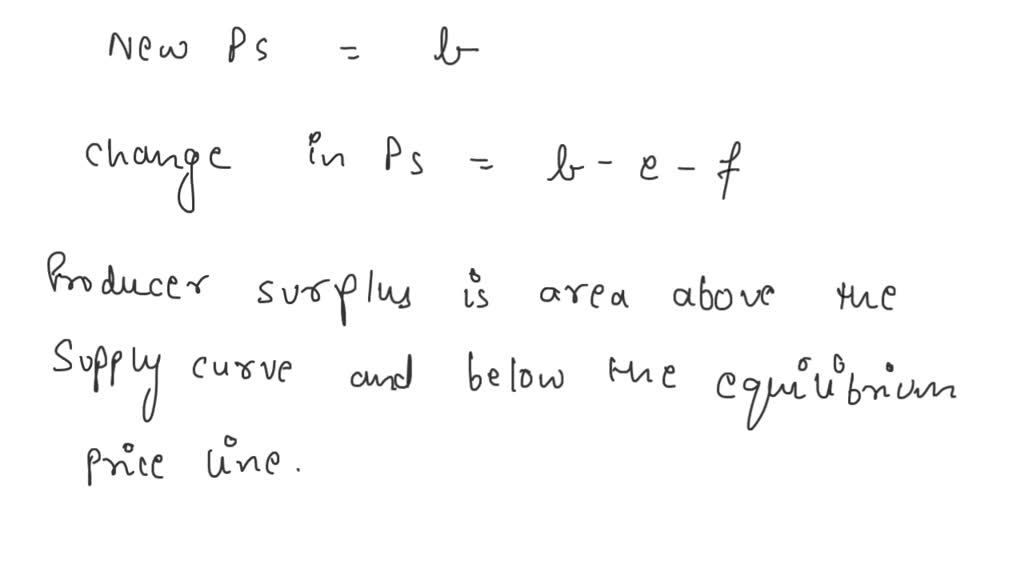 New Ps = b
change in Ps = b - e - f
Producer surplus is area above the
Supply curve and below the equilibrium
price line.